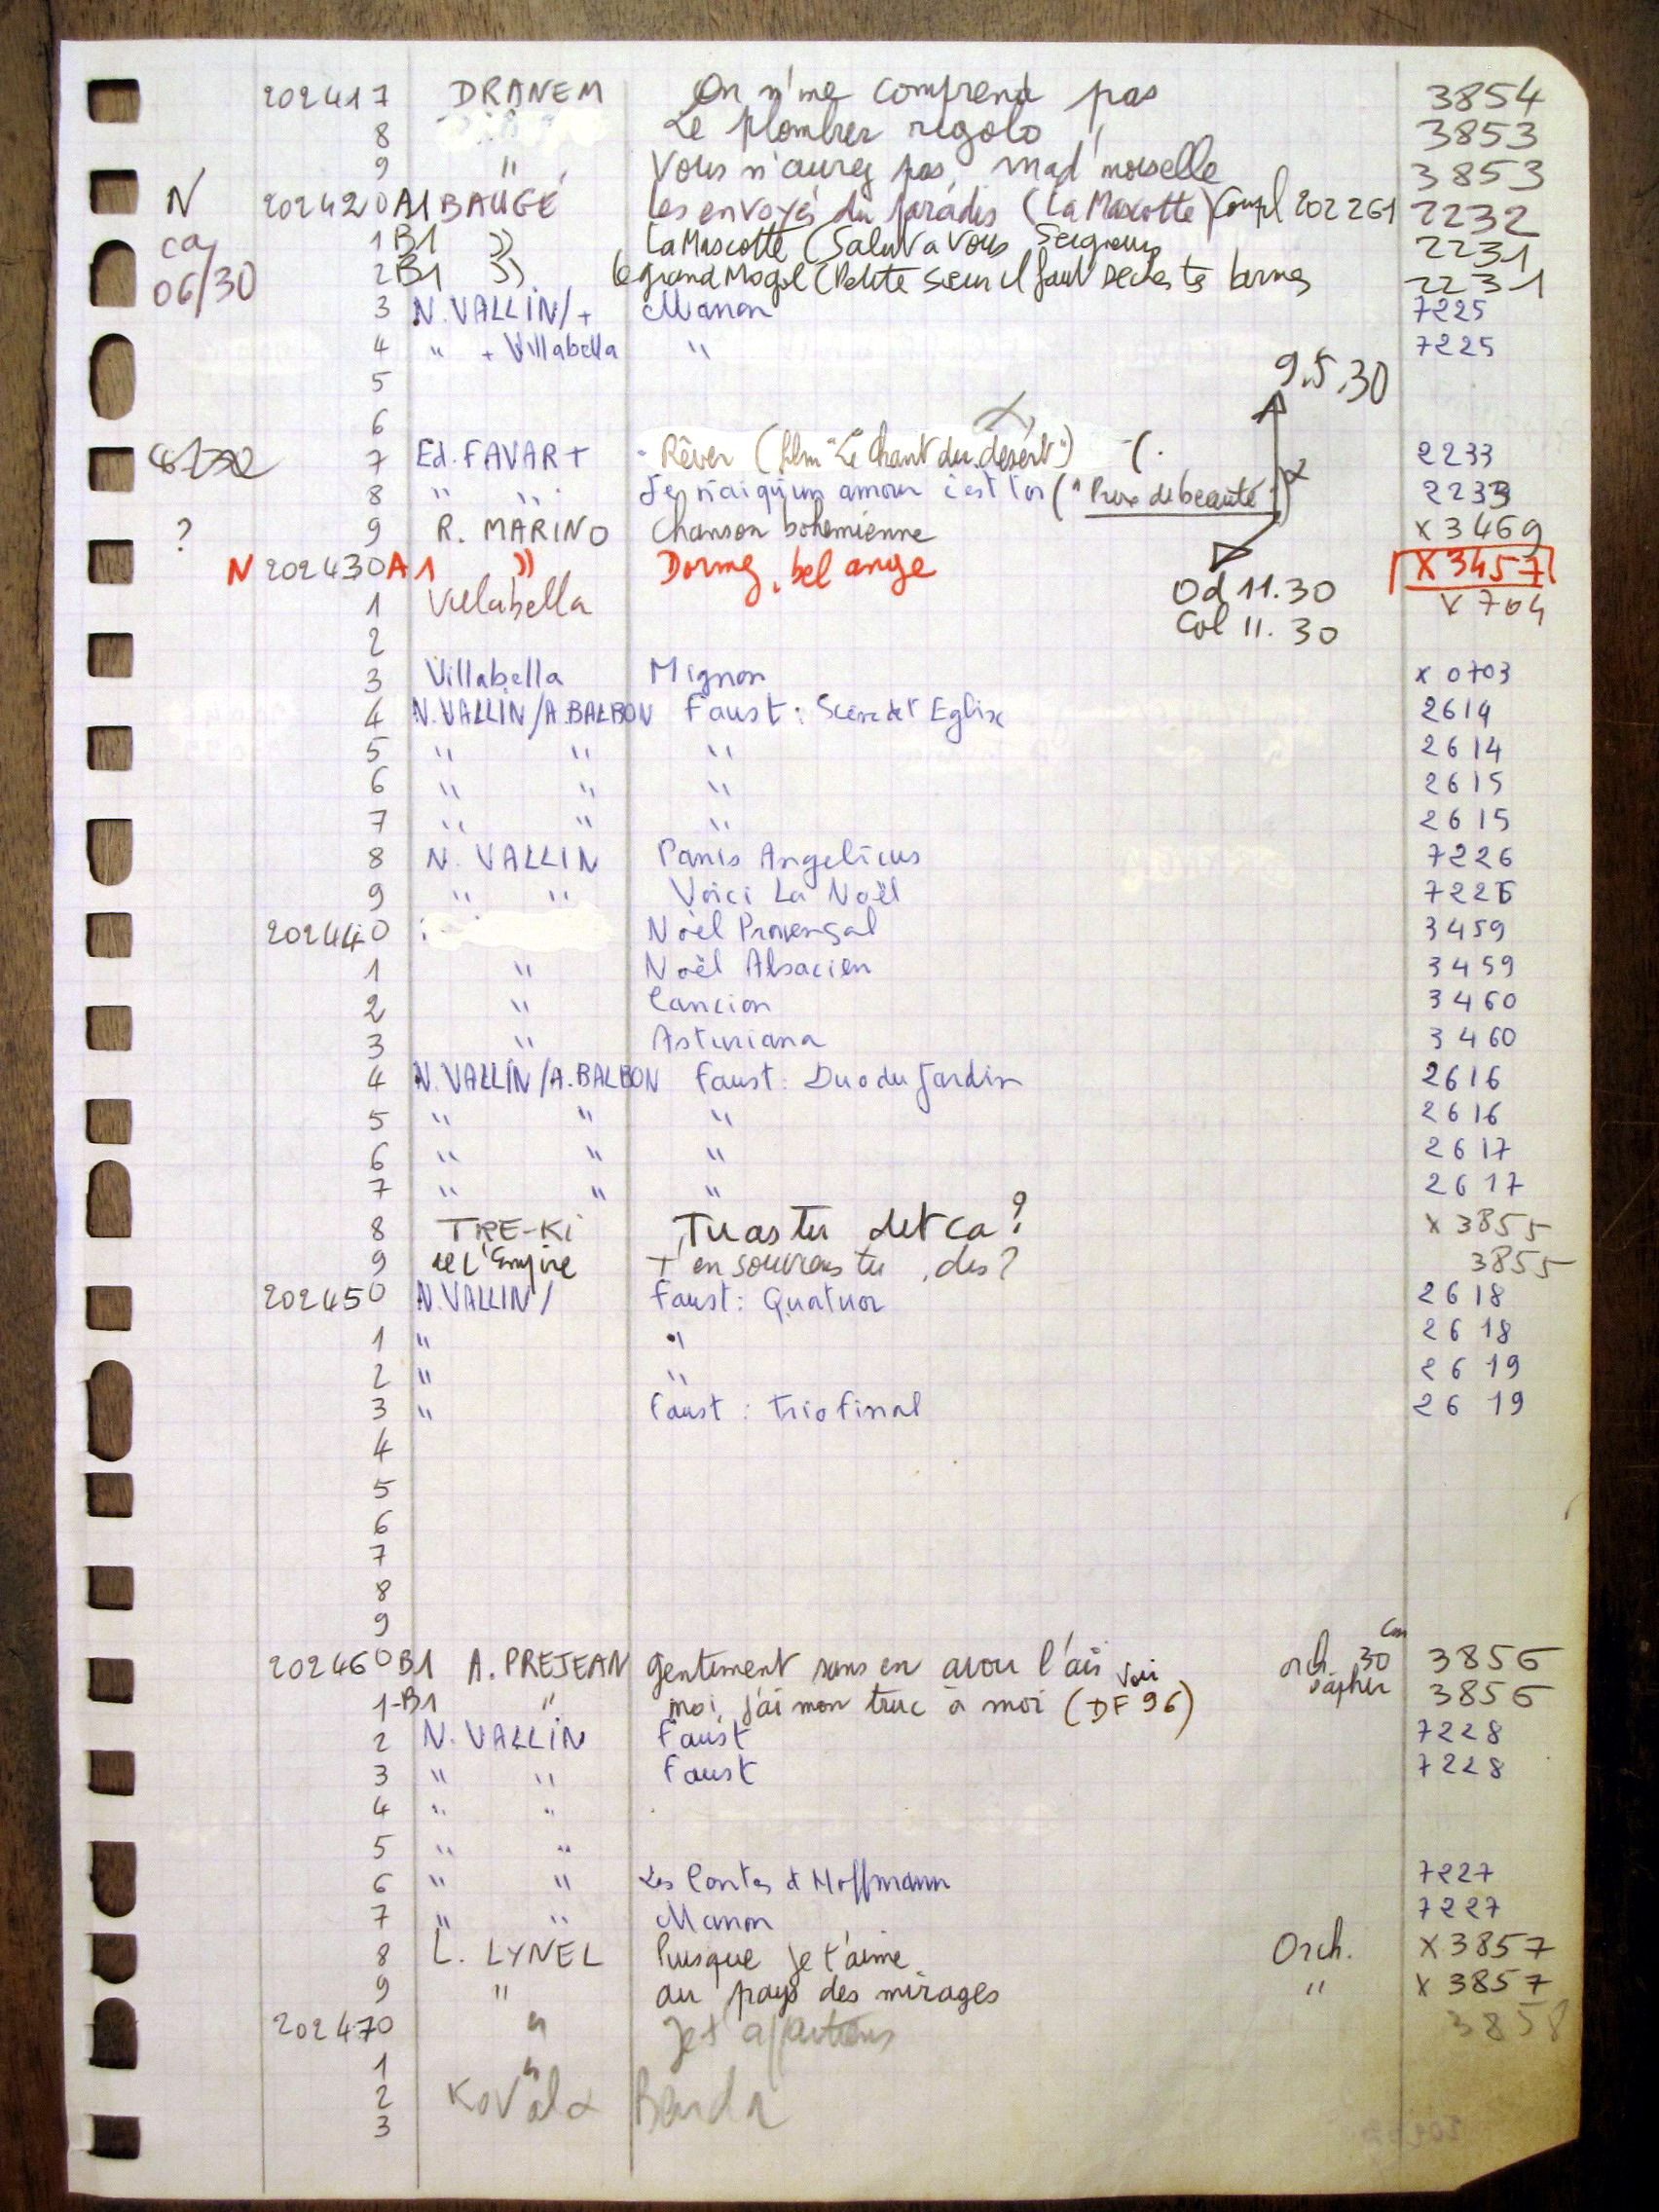 202417 DRANEM On n'me comprend pas 3854
8 Le plombier rigolo 3853
9 " Vous n'aurez pas, mad'moiselle 3853
N 202420 A1 BAUGÉ Les envoyés du paradis (La Mascotte) Coupl 202261 2232
ca 1 B1 " La Mascotte (Salut à vous Seigneurs 2231
06/30 2 B1 " le grand Mogol (Petite sœur il faut seches tes larmes 2231
3 N. VALLIN/+ Manon 7225
4 " + Villabella " 7225
5 9.5.30
6
7 Ed. FAVART Rêver (film "Le Chant du désert") 2233
8 " " Je n'ai qu'un amour c'est toi ("Prix de beauté") 2233
? 9 R. MARINO Chanson bohemienne X 3469
N 202430 A1 " Dormez, bel ange X 3457
1 Villabella Od 11.30 X 704
2 Col 11.30
3 Villabella Mignon X 0703
4 N. VALLIN/A. BALBON Faust : Scène de l'Eglise 2614
5 " " " 2614
6 " " " 2615
7 " " " 2615
8 N. VALLIN Panis Angelicus 7226
9 " " Voici La Noël 7226
202440 Noël Provençal 3459
1 " Noël Alsacien 3459
2 " Cancion 3460
3 " Asturiana 3460
4 N. VALLIN/A. BALBON Faust : Duo du Jardin 2616
5 " " " 2616
6 " " " 2617
7 " " " 2617
8 TRE-Ki Tu as tu det ca ? X 3855
9 de L'Empire T'en souviens tu, dis ? 3855
202450 N. VALLIN/ Faust : Quatuor 2618
1 " " 2618
2 " " 2619
3 " Faust : trio final 2619
4
5
6
7
8
9
202460 B1 A. PREJEAN gentiment sans en avoir l'air orch. 30 cm 3856
1-B1 " moi, j'ai mon truc à moi (Voir DF 96) saphir 3856
2 N. VALLIN Faust 7228
3 " " Faust 7228
4 " "
5 " "
6 " " Les Contes d'Hoffmann 7227
7 " " Manon 7227
8 L. LYNEL Puisque je t'aime Orch. X 3857
9 " au pays des mirages " X 3857
202470 " Je t'appartiens 3858
1 "
2 KOVAL & Barda
3